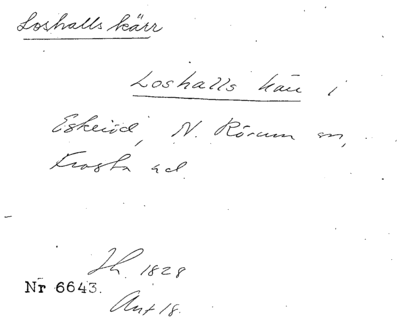 Loshalls kärr
Loshalls kärr i
Eskeröd, N. Rörum sn,
Frosta hd
Jh. 1828
Nr 6643.
Ant 18.